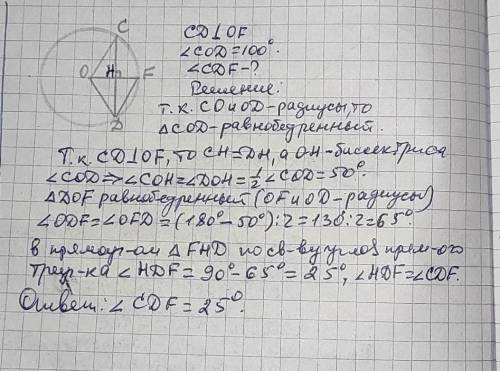 C
O H F
D
CD⊥OF
∠COD=100°.
∠CDF-?
Решение:
т.к. CO и OD-радиусы, то
△COD-равнобедренный.
Т.к. CD⊥OF, то CH=DH, а OH-биссектриса
∠COD⇒∠COH=∠DOH=½∠COD=50°.
△DOF равнобедренный (OF и OD-радиусы)
∠ODF=∠OFD=(180°-50°):2=130°:2=65°.
В прямоуг-ом △FHD по св-ву углов прям-ого
треуг-ка ∠HDF=90°-65°=25°, ∠HDF=∠CDF.
Ответ: ∠CDF=25°.